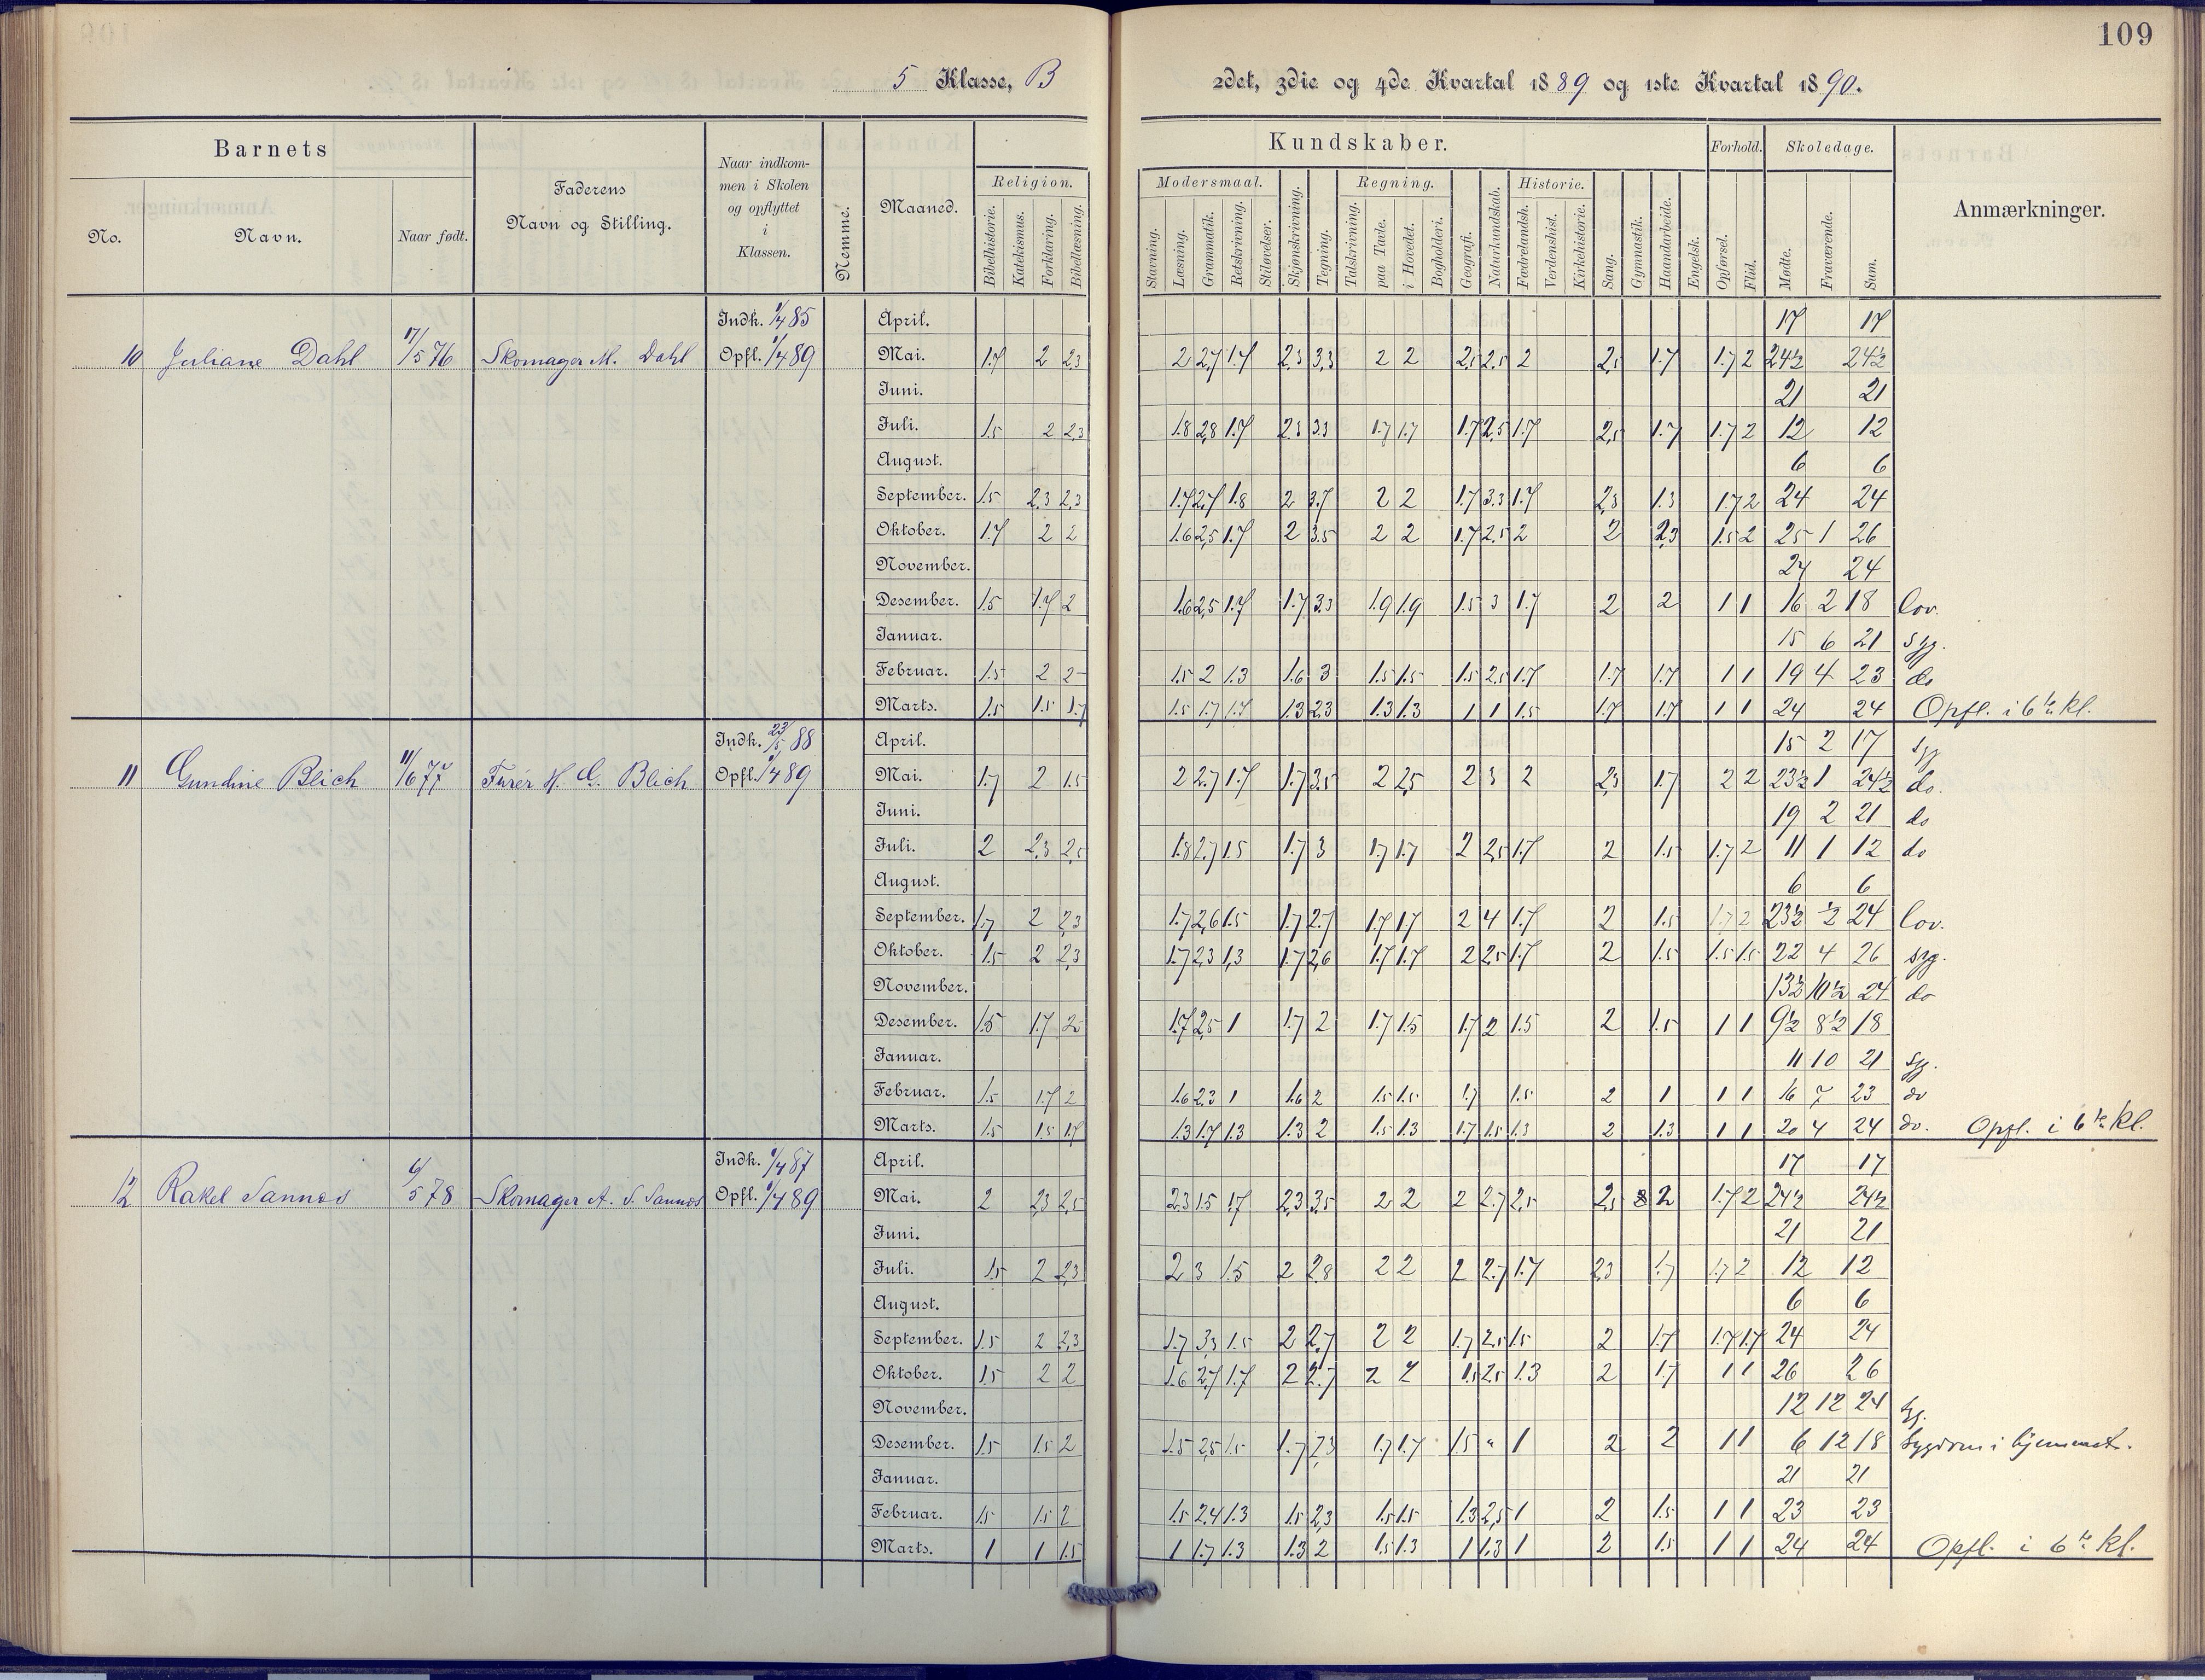 109
5 Klasse, B 2det, 3die og 4de Kvartal 1889 og 1ste Kvartal 1890.
Barnets
No.
Navn.
Naar født.
Faderens
Navn og Stilling.
Naar indkom-
men i Skolen
og opflyttet
i
Klassen.
Nemme.
Maaned.
Kundskaber.
Religion.
Bibelhistorie.
Katekismus.
Forklaring.
Bibellæsning.
Modersmaal.
Stavning.
Læsning.
Grammatik.
Retskrivning.
Stiløvelser.
Skjønskrivning.
Tegning.
Regning.
Talskrivning.
paa Tavle.
i Hovedet.
Bogholderi.
Geografi.
Naturkundskab.
Historie.
Fædrelandsh.
Verdenshist.
Kirkehistorie.
Sang.
Gymnastik.
Haandarbeide.
Engelsk.
Forhold.
Opførsel.
Flid.
Skoledage.
Mødte.
Fraværende.
Sum.
Anmærkninger.
Indk. 1/4 85 April. 17 17
10 Juliane Dahl 17/5 76 Skomager M. Dahl Opfl. 1/4 89 Mai. 1.7 2 2,3 2 2,7 1.7 2,3 3,3 2 2 2,5 2,5 2 2,5 1.7 1.7 2 24½ 24½
Juni. 21 21
Juli. 1.5 2 2,3 1.8 2,8 1.7 2,3 3.3 1.7 1.7 1.7 2,5 1.7 2,5 1.7 1.7 2 12 12
August. 6 6
September. 1.5 2,3 2,3 1.7 2,7 1.8 2 3,7 2 2 1.7 3.3 1.7 2,3 1.3 1.7 2 24 24
Oktober. 1.7 2 2 1.6 2,5 1.7 2 3.5 2 2 1.7 2.5 2 2 2,3 1.5 2 25 1 26
November. 24 24
Desember. 1.5 1.7 2 1.6 2,5 1.7 1.7 3.3 1.9 1.9 1.5 3 1.7 2 2 1 1 16 2 18 lov.
Januar. 15 6 21 syg.
Februar. 1.5 2 2 1.5 2 1.3 1.6 3 1.5 1.5 1.5 2.5 1.7 1.7 1.7 1 1 19 4 23 do
Marts. 1.5 1.5 1.7 1.5 1.7 1.7 1.3 2,3 1.3 1.3 1 1 1.5 1.7 1.7 1 1 24 24 Opfl. i 6te kl.
Indk. 23/5 88 April. 15 2 17 syg
11 Gundine Blich 11/6 77 Furér H. G. Blich Opfl. 1/4 89 Mai. 1.7 2 1.5 2 2.7 1.7 1.7 3.5 2 2,5 2 3 2 2,3 1.7 2 2 23½ 1 24½ do.
Juni. 19 2 21 do
Juli. 2 2,3 2,5 1.8 2,7 1.5 1.7 3 1.7 1.7 2 2,5 1.7 2 1.5 1.7 2 11 1 12 do
August. 6 6
September. 1.7 2 2,3 1.7 2,6 1.5 1.7 2.7 1.7 1.7 2 4 1.7 2 1.5 1.7 2 23½ ½ 24 lov.
Oktober. 1.5 2 2,3 1.7 2,3 1,3 1.7 2,6 1.7 1.7 2 2.5 1.7 2 1.5 1.5 1.5 22 4 26 syg.
November. 13½ 10½ 24 do
Desember. 1.5 1.7 2 1.7 2,5 1 1.7 2 1.7 1.5 1.7 2 1.5 2 1.5 1 1 9½ 8½ 18
Januar. 11 10 21 syg.
Februar. 1.5 1.7 2 1.6 2.3 1 1.6 2 1.5 1.5 1.7 1.5 2 1 1 1 16 7 23 do
Marts. 1.5 1.5 1.7 1.3 1.7 1.3 1.3 2 1.5 1.3 1.7 1.5 1.3 2 1.3 1 1 20 4 24 do. Opfl. i 6te kl.
Indk. 1/4 87 April. 17 17
12 Rakel Sannes 6/5 78 Skomager A. S. Sannes Opfl. 1/4 89 Mai. 2 2,3 2,5 2.3 1.5 1.7 2,3 3,5 2 2 2 2.7 2,5 2,5 2 1.7 2 24½ 24½
Juni. 21 21
Juli. 1.5 2 2,3 2 3 1.5 2 2,8 2 2 2 2.7 1.7 2,3 1.7 1.7 2 12 12
August. 6 6
September. 1.5 2 2,3 1.7 3,3 1.5 2 2,7 2 2 1.7 2,5 1.5 2 1.7 1.7 1.7 24 24
Oktober. 1.5 2 2 1.6 2,7 1.7 2 2.7 2 2 1.5 2.5 1.3 2 1.7 1 1 26 26
November. 12 12 24 syg.
Desember. 1.5 1.5 2 1.5 2,5 1.5 1.7 2,3 1.7 1.7 1.5 " 1 2 2 1 1 6 12 18 Sygdom i hjemmet.
Januar. 21 21
Februar. 1.5 1.5 2 1.5 2,4 1.3 1.5 2,3 1.5 1.5 1.3 2,5 1 2 1.5 1 1 23 23
Marts. 1 1 1.5 1 1.7 1.3 1.3 2 1.5 1.3 1 1.3 1 2 1.5 1 1 24 24 Opfl. i 6te kl.